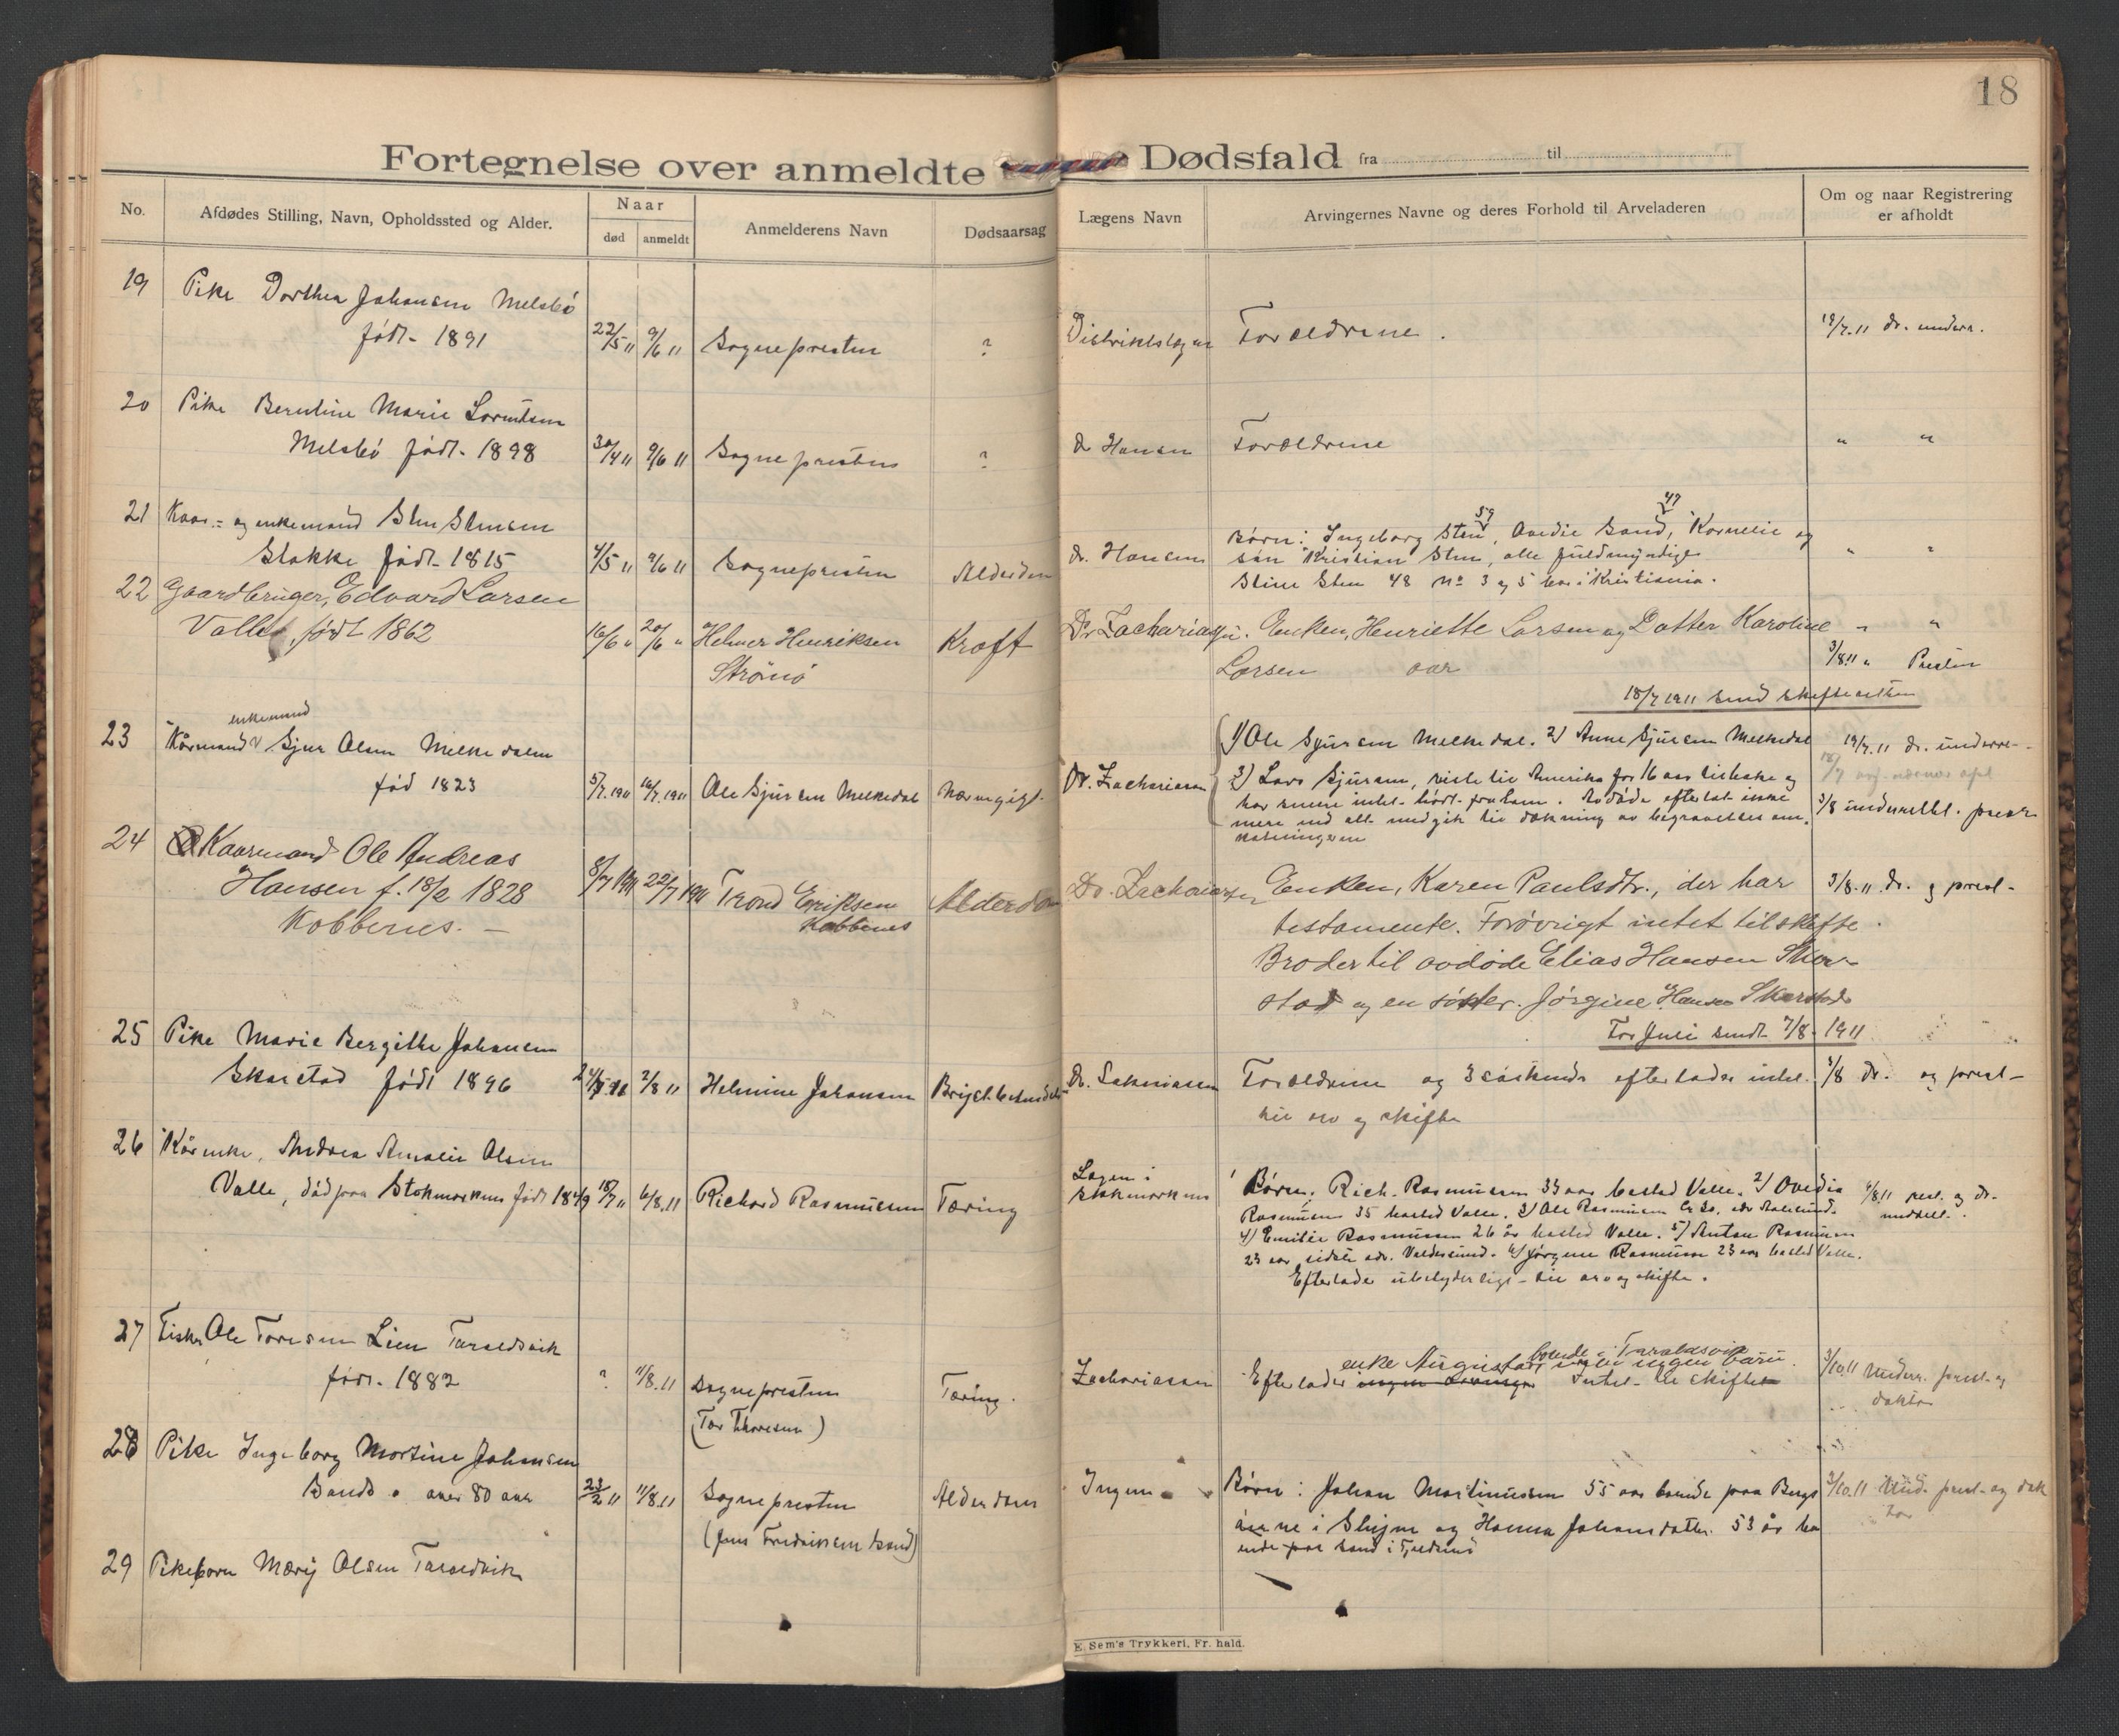 18
Fortegnelse over anmeldte Dødsfald fra til
No.
Afdødes Stilling, Navn, Opholdssted og Alder.
Naar
død anmeldt
Anmelderens Navn
Dødsaarsag
Lægens Navn
Arvingernes Navne og deres Forhold til Arveladeren
Om og naar Registrering
er afholdt
19 Pike Dorthea Johansen Melsbö
født 1891 22/5 11 9/6 11 Sognepresten ? Distriktslægen Forældrene. 19/7.11 dr. underr.
20 Pike Berntine Marie Lorentsen
Melsbö født 1898 30/4 11 9/6 11 Sognepresten ? dr Hansen Forældrene " "
21 Kaar- og enkemand Sten Stensen
Stokke født 1815 4/5 11 9/6 11 Sognepresten Alderdom dr. Hansen
Børn: Ingeborg Sten 59, Ovedie Sand 47, Kornelie og
søn Kristian Sten, alle fuldmyndige
Stine Sten 48 No 3 og 5 bor i Kristiania.
22 Gaardbruger, Edvard Larsen
Valle, født 1862 16/6 " 20/6 " Helmer Henriksen Kræft Dr Zachariassen. Enken, Henriette Larsen og Datter Karoline " "
Strönö Larsen aar 3/8.11 " Presten
18/7 1911 send skifteretten
23 Kårmand enkemand Sjur Olsen Melkedalen
fød 1823 5/7.1911 16/7.1911 Ole Sjursen Melkedal Dr. Zachariasen
1) Ole Sjursen Melkedal. 2) Anne Sjursen Melkedal
3) Lars Sjursen, reiste til Amerika for 16 aar tilbake og
har senere intet hørt fra ham. Avdøde efterlot ikke
mere end alt medgik til dækning av begravelses om-
kostningerne
19/7.11 dr. underre-
3/8 underrettet prest
24 Kaarmand Ole Andreas
Hansen f. 18/2 1828
Kobbenes. —
8/7 1911 22/7 1911 Trond Eriksen
Kobbenes
Alderdom Dr. Zachariasen
Enken, Karen Paulsdtr., der har
testamente. Forøvrigt intet til skifte.
Broder til avdøde Elias Hansen Skar-
stad og en söster. Jørgine Hansen Skarstad
3/8.11 dr. og prest-
For Juli sendt 7/8 1911
25 Pike Marie Bergithe Johansen
Skarstad født 1896 2/8 11 Helmine Johansen
Forældrene og 3 søskende efterlader intet
til arv og skifte
3/8 dr. og prest-
26 Kårenke, Andrea Amalie Olsen
Valle, død paa Stokmarknes født 1849 18/7 11 6/8.11 Richard Rasmussen Tæring
Lægen i
Stokmarknes
1 Børn: Rich. Rasmussen 33 aar bosted Valle. 2) Ovedia
Rasmussen 35 bosted Valle. 3) Ole Rasmussen
4) Emilie Rasmussen 26 år bosted Valle. 5) Anton Rasmussen
23 aar, sidste adr. Valdersund. 6) Jørgen Rasmussen 23 aar bosted Valle.
Efterlader ubetydelig til arv og skifte.
6/8.11 prest. og dr.
meddelt.
27 Fisker Ole Toresen Lien Taraldsvik
født 1882 ? 11/8.11 Sognepresten
(Tor Thoresen)
Tæring. Zachariasen
Efterlader enke Augusta boende i Taraldsvik ingen børn.
Intet til skifte
3/10.11 Underr. prest og
doktor
28 Pike Ingeborg Martine Johansen
Sand. over 80 aar 23/2 11 11/8.11 Sognepresten
(Jens Fredriksen Sand)
Alderdom Ingen
Børn: Johan Martinussen 55 aar boende paa Bergs
i og Hanna Johansdatter 53 år bo
ende paa Sand i Tjeldsund
3/10.11 Und. prest og dok
tor
29 Pikebarn Mary Olsen Taraldsvik
E. Sem's Trykkeri, Fr.hald.